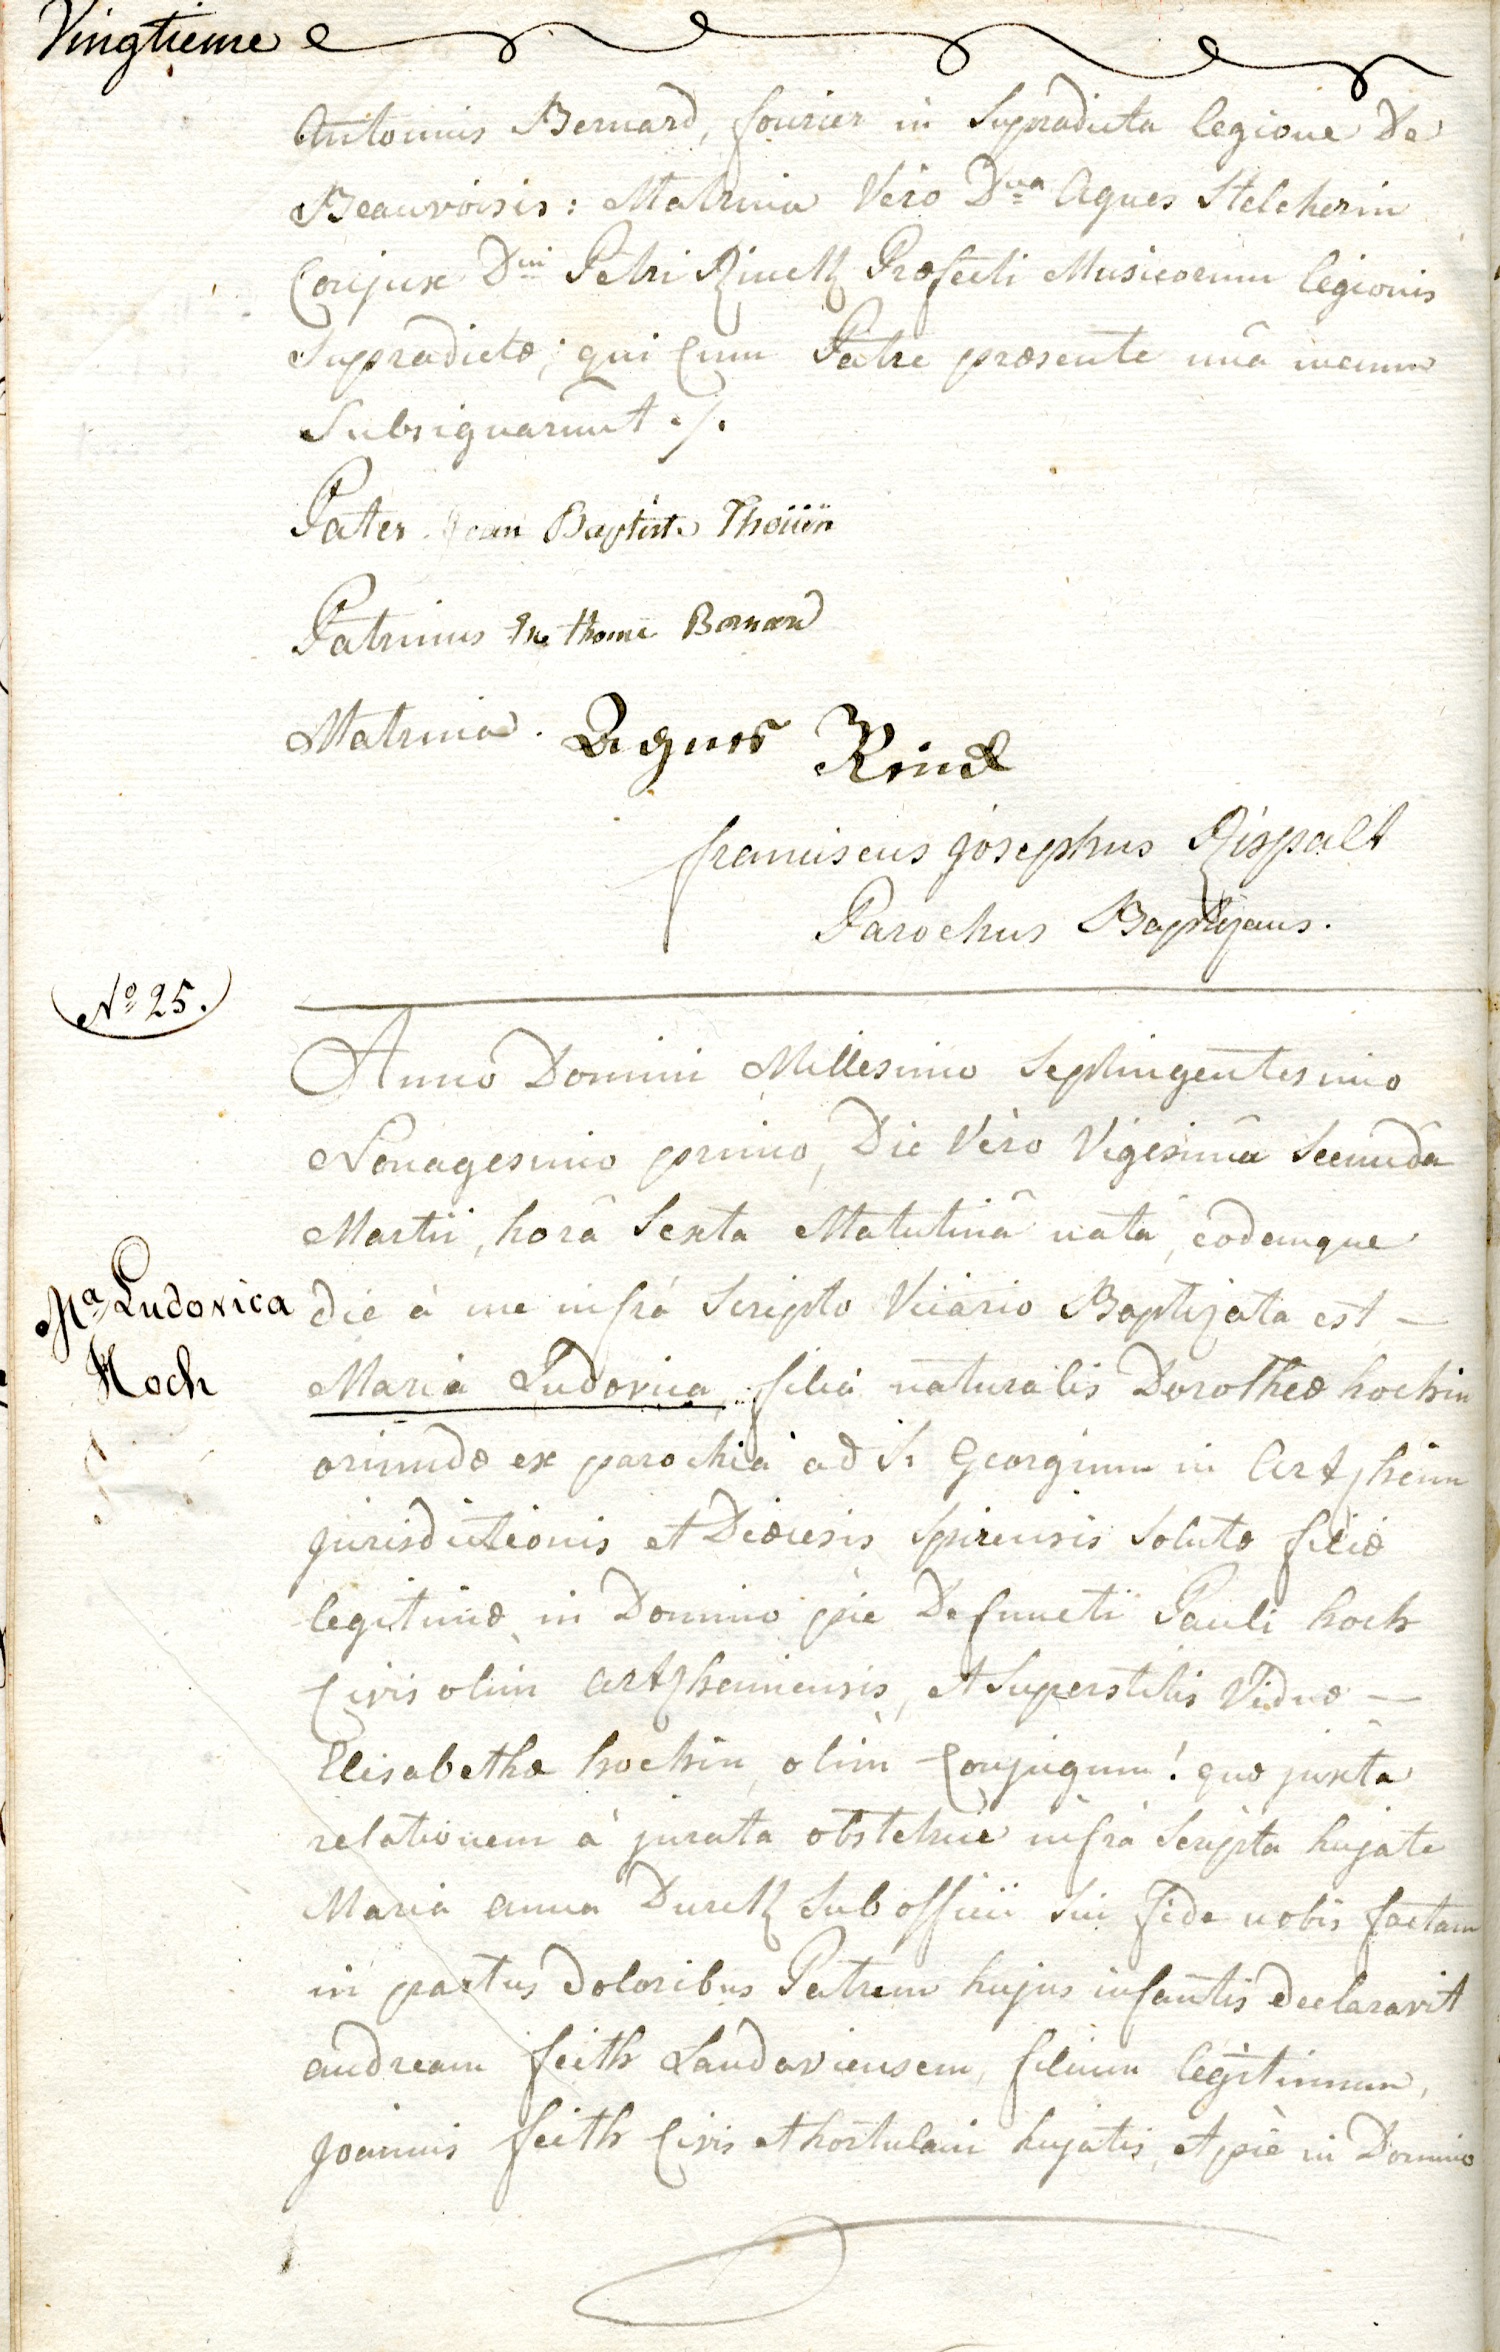 Vingtieme
Antonius Bernard, fourier in Supradicta legione De
Beauvoisis: Matrina Vero Dna Agnes Stelcherin
Conjux Dni Petri Rinck Præfecti Musicorum legionis
Supradictæ; qui Cum Patre præsente unâ mecum
Subsignarunt ./.
Pater Jean Baptiste Thoüin
Patrinus Bernard
Matrina. Agnes Rinck
franciscus josephus Rispalt
Parochus Baptizans.
No 25.
Anno Domini Millesimo Septingentesimo
Nonagesimo primo, Die Vero Vigesimâ Secundâ
Martii, horâ Sexta Matutinâ nata, eodemque
Ma Ludovica
Koch
die à me infrà Scripto Vicario Baptizata est —
Maria Ludovica, filia naturalis Dorotheæ kochin
oriundæ ex parochiâ ad S. Georgium in Artzheim
jurisdictionis et Diœcesis Spirensis Solutæ filiæ
legitimæ in Domino pie Defuncti Pauli koch
Civis olim Artzheimensis, et Superstitis Viduæ —
Elisabethæ kochin, olim Conjugum! quæ juxta
relationem à jurata obstetrice infrà Scripta hujate
Maria anna Durck Sub officii Sui fide nobis factam
in partus doloribus Patrem hujus infantis declaravit
andream feith Landaviensem, filium legitimum,
joannis feith Civis et hortulani hujatis, et piè in Domino